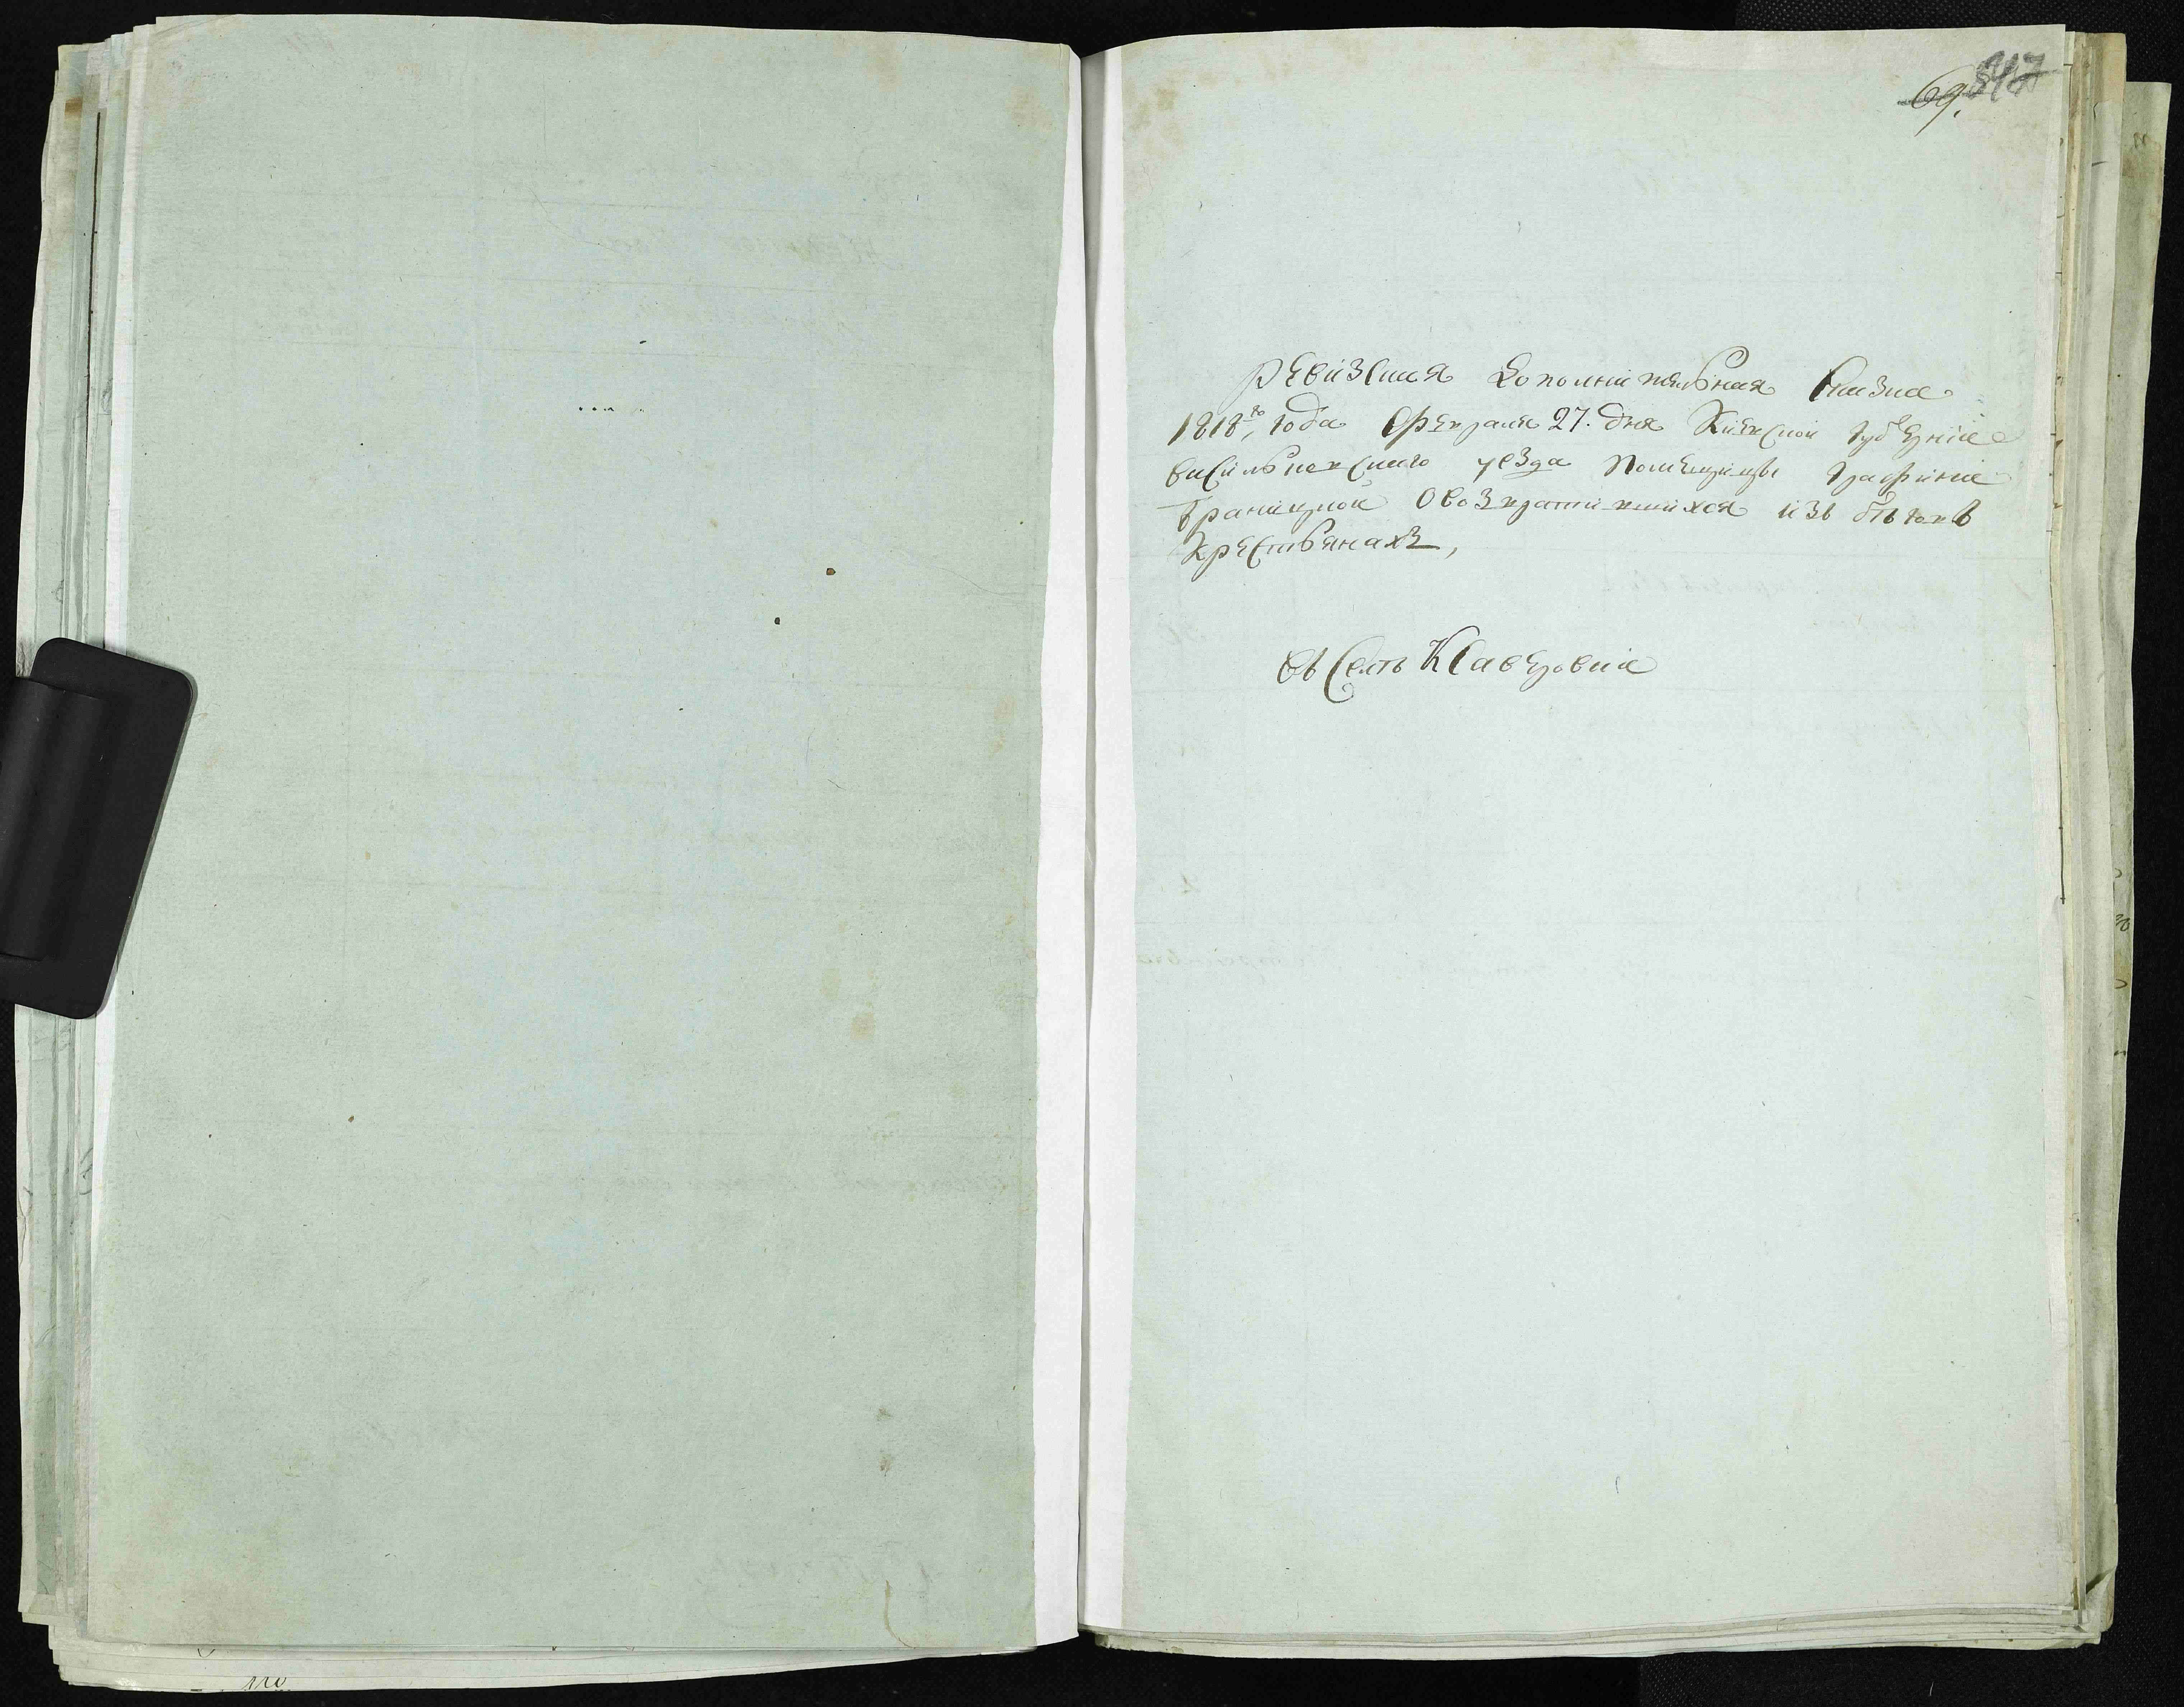 69. 847
Ревизская дополнительная сказка
1818го, года Февраля 27. дня Киевской губернии
васильковского уезда Помещицы графини
браницкой Овозвратившихся изъ бѣговъ
Крестьянахъ,
въ Селѣ Ксаверовки